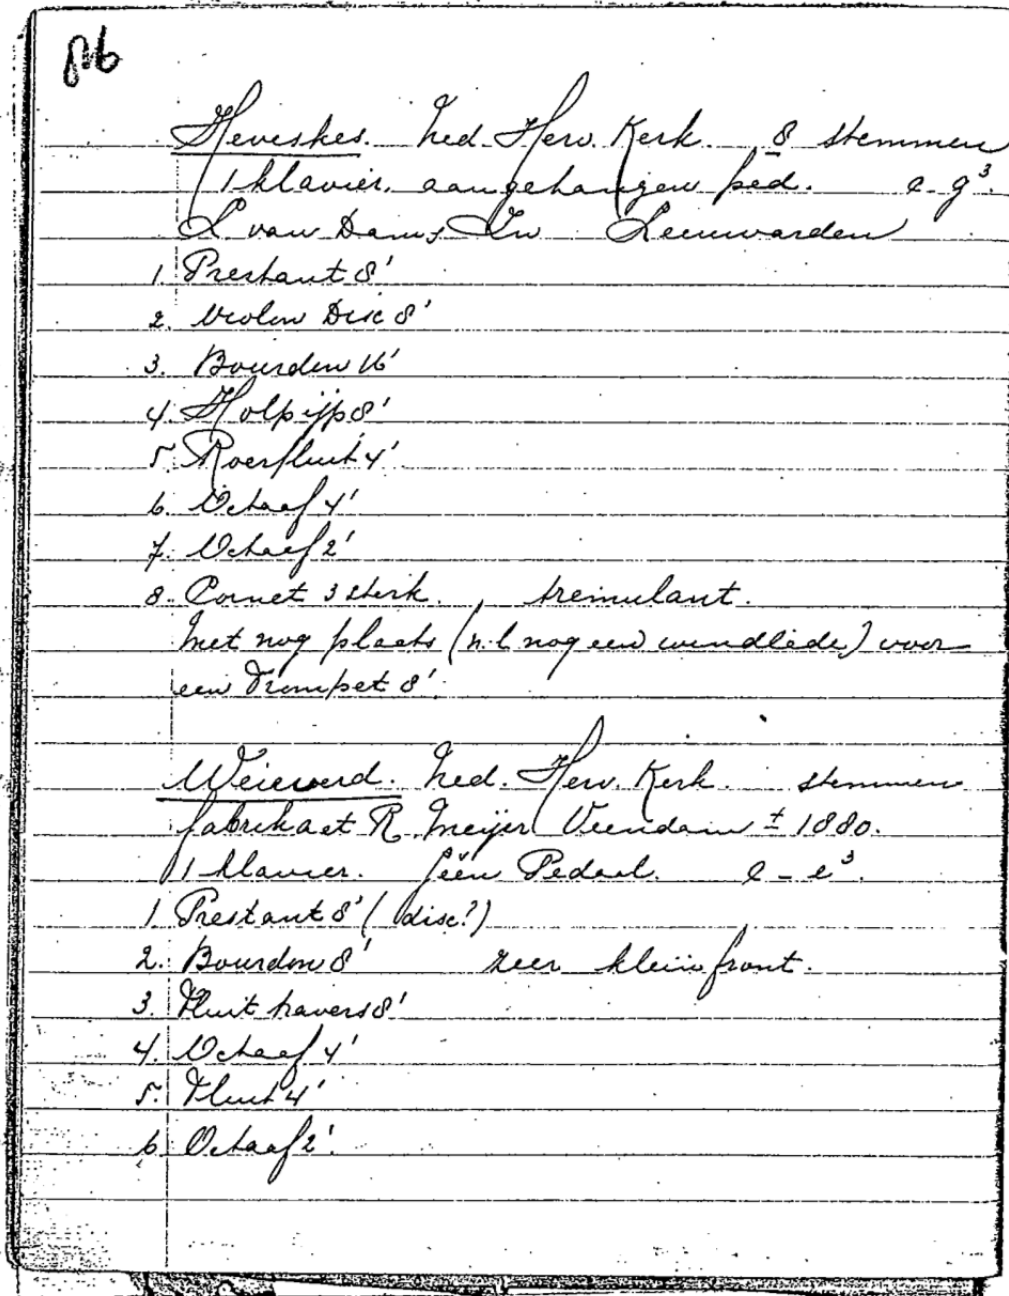 Heveskes. Ned. Herv. Kerk. 8 stemmen
1 klavier. aangehangen ped. c-g³.
L van Dam & Zn Leeuwarden
1. Prestant 8'
2. Violon Disc 8'
3. Bourdon 16'
4. Holpijp 8'
5. Roerfluit 4'
6. Octaaf 4'
7. Octaaf 2'
8. Cornet 3 sterk. tremulant.
Met nog plaats (n.l nog een windlade) voor
een Trompet 8'.
Weiwerd. Ned. Herv. Kerk. stemmen
fabrikaat R. Meijer Veendam ± 1880.
1 klavier. géén Pedaal. c - e³.
1. Prestant 8' (disc?)
2. Bourdon 8' zeer klein front.
3. Fluit travers 8'
4. Octaaf 4'
5. Fluit 4'
6. Octaaf 2'.